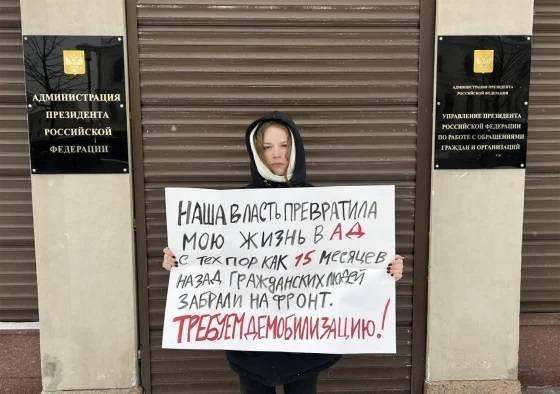 АДМИНИСТРАЦИЯ
ПРЕЗИДЕНТА
РОССИЙСКОЙ
ФЕДЕРАЦИИ
АДМИНИСТРАЦИЯ ПРЕЗИДЕНТА
РОССИЙСКОЙ ФЕДЕРАЦИИ
УПРАВЛЕНИЕ ПРЕЗИДЕНТА
РОССИЙСКОЙ ФЕДЕРАЦИИ
ПО РАБОТЕ С ОБРАЩЕНИЯМИ
ГРАЖДАН И ОРГАНИЗАЦИЙ
НАША ВЛАСТЬ ПРЕВРАТИЛА
МОЮ ЖИЗНЬ В АД
С ТЕХ ПОР КАК 15 МЕСЯЦЕВ
НАЗАД ГРАЖДАНСКИХ ЛЮДЕЙ
ЗАБРАЛИ НА ФРОНТ.
ТРЕБУЕМ ДЕМОБИЛИЗАЦИЮ!